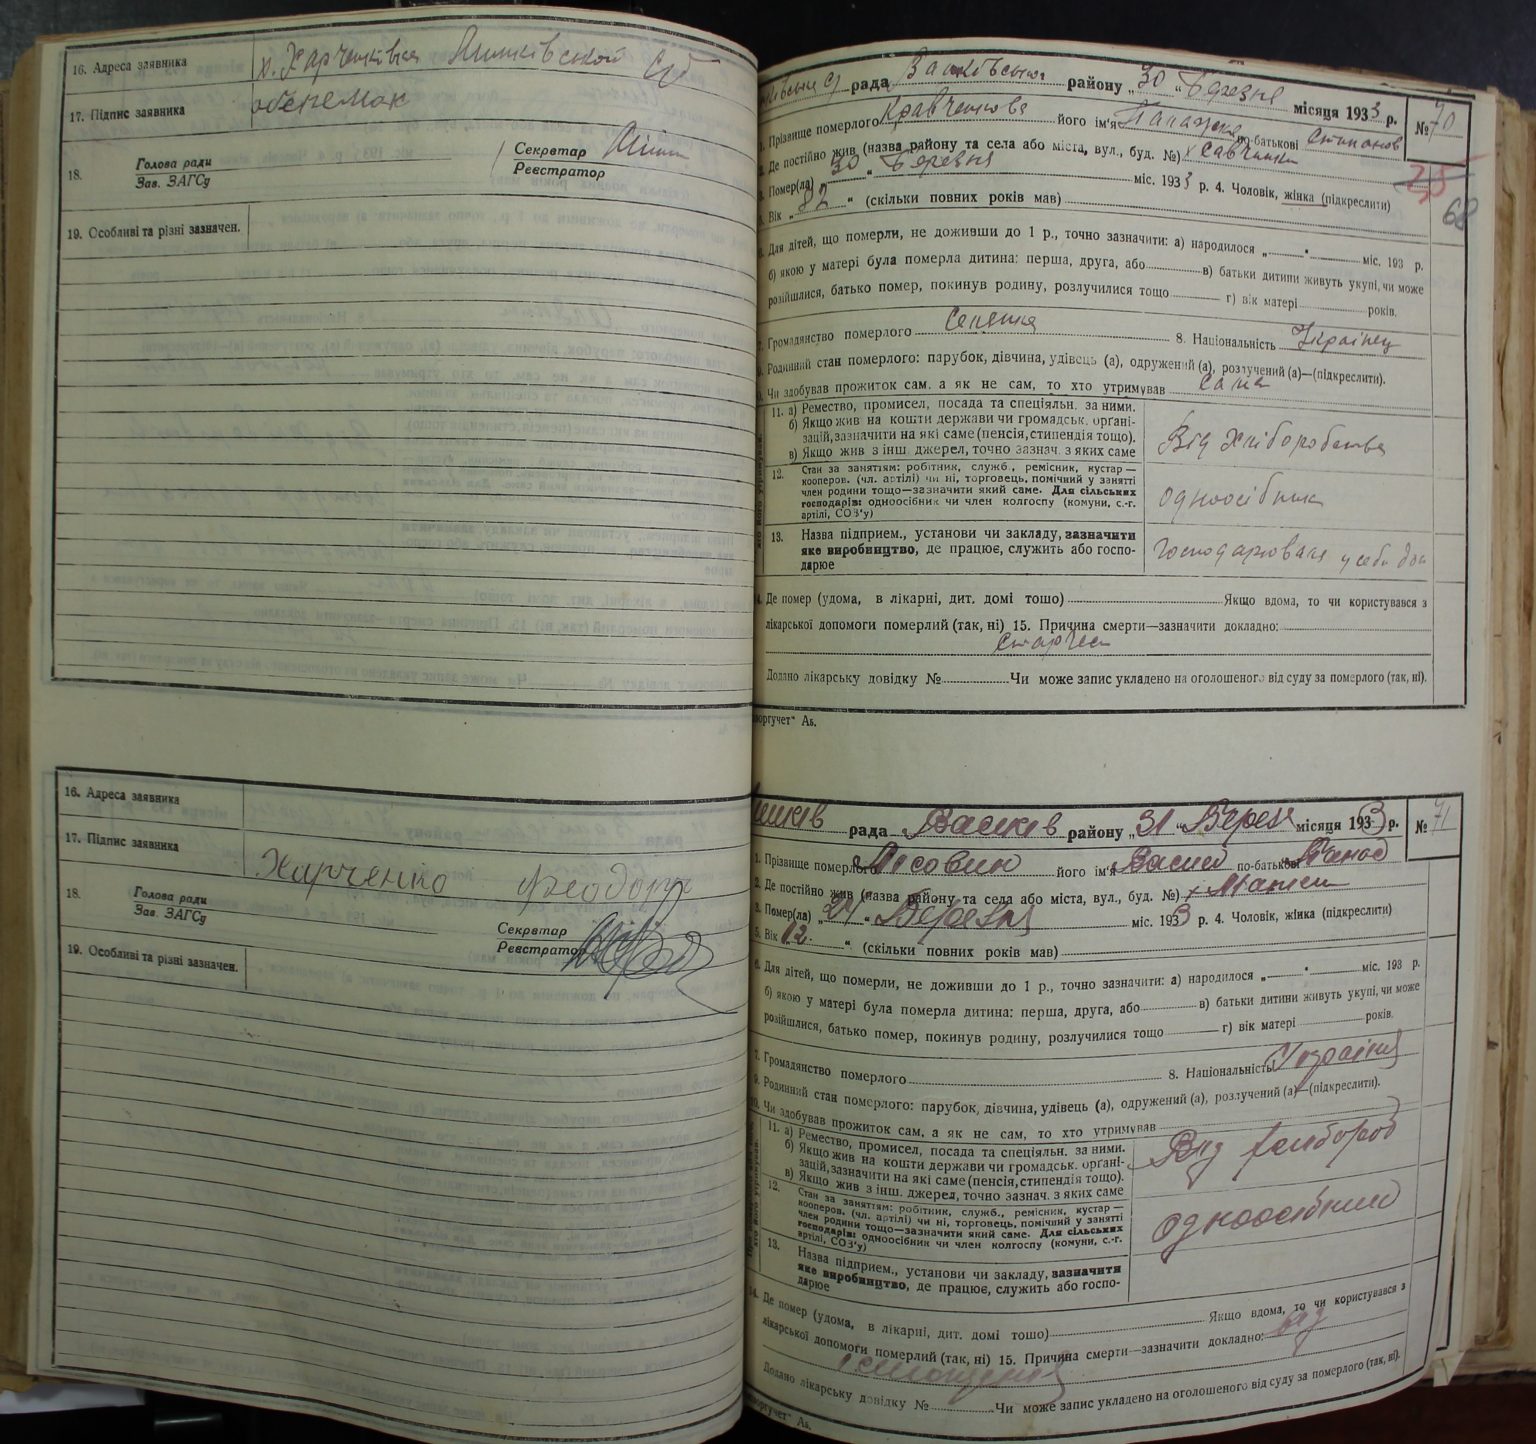 16. Адреса заявника х. Харченківка
17. Підпис заявника
18. Голова ради
Зав. ЗАГСу
Секретар
Реєстратор
19. Особливі та різні зазначен.
рада району „30“ Березня місяця 1933 р. №70
1. Прізвище померлого Кравченкова його ім'я по-батькові Степанов
2. Де постійно жив (назва району та села або міста, вул., буд. №) х Савчинки
3. Помер(ла) „30“ Березня міс. 1933 р. 4. Чоловік, жінка (підкреслити)
25
68
5. Вік „82“ (скільки повних років мав)
6. Для дітей, що померли, не доживши до 1 р., точно зазначити: а) народилося „ “ міс. 193 р.
б) якою у матері була померла дитина: перша, друга, або в) батьки дитини живуть укупі, чи може
розійшлися, батько помер, покинув родину, розлучилися тощо г) вік матері років.
7. Громадянство померлого Селянка 8. Національність Українец
9. Родинний стан померлого: парубок, дівчина, удівець (а), одружений (а), розлучений (а)—(підкреслити).
10. Чи здобував прожиток сам, а як не сам, то хто утримував сама
11. а) Ремество, промисел, посада та спеціяльн. за ними.
б) Якщо жив на кошти держави чи громадськ. органі-
зацій, зазначити на які саме (пенсія, стипендія тощо).
в) Якщо жив з інш. джерел, точно зазнач. з яких саме
Від Хліборобства
12. Стан за заняттям: робітник, служб., ремісник, кустар—
кооперов. (чл. артілі) чи ні, торговець, помічний у занятті
член родини тощо—зазначити який саме. Для сільських
господарів: одноосібник чи член колгоспу (комуни, с.-г.
артілі, СОЗ'у)
одноосібник
13. Назва підприєм., установи чи закладу, зазначити
яке виробництво, де працює, служить або госпо-
дарює
Господарювала у себе
14. Де помер (удома, в лікарні, дит. домі тошо) Якщо вдома, то чи користувався з
лікарської допомоги померлий (так, ні) 15. Причина смерти—зазначити докладно:
Додано лікарську довідку № Чи може запис укладено на оголошеного від суду за померлого (так, ні).
16. Адреса заявника
17. Підпис заявника Харченко Феодор
18. Голова ради
Зав. ЗАГСу
Секретар
Реєстратор
19. Особливі та різні зазначен.
рада Вашків району „31“ Березня місяця 1933 р. №71
1. Прізвище померлого Лісовик його ім'я Васил по-батькові
2. Де постійно жив (назва району та села або міста, вул., буд. №)
3. Помер(ла) „ “ Березня міс. 1933 р. 4. Чоловік, жінка (підкреслити)
5. Вік „12.“ (скільки повних років мав)
6. Для дітей, що померли, не доживши до 1 р., точно зазначити: а) народилося „ “ міс. 193 р.
б) якою у матері була померла дитина: перша, друга, або в) батьки дитини живуть укупі, чи може
розійшлися, батько помер, покинув родину, розлучилися тощо г) вік матері років.
7. Громадянство померлого 8. Національність
9. Родинний стан померлого: парубок, дівчина, удівець (а), одружений (а), розлучений (а)—(підкреслити).
10. Чи здобував прожиток сам, а як не сам, то хто утримував
11. а) Ремество, промисел, посада та спеціяльн. за ними.
б) Якщо жив на кошти держави чи громадськ. органі-
зацій, зазначити на які саме (пенсія, стипендія тощо).
в) Якщо жив з інш. джерел, точно зазнач. з яких саме
12. Стан за заняттям: робітник, служб., ремісник, кустар—
кооперов. (чл. артілі) чи ні, торговець, помічний у занятті
член родини тощо—зазначити який саме. Для сільських
господарів: одноосібник чи член колгоспу (комуни, с.-г.
артілі, СОЗ'у)
одноосібник
13. Назва підприєм., установи чи закладу, зазначити
яке виробництво, де працює, служить або госпо-
дарює
14. Де помер (удома, в лікарні, дит. домі тошо) Якщо вдома, то чи користувався з
лікарської допомоги померлий (так, ні) 15. Причина смерти—зазначити докладно: від
Додано лікарську довідку № Чи може запис укладено на оголошеного від суду за померлого (так, ні).